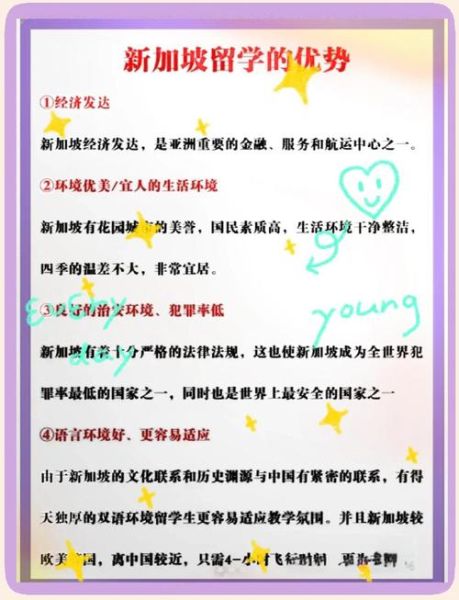 新加坡留学的优势
①经济发达
新加坡经济发达，是亚洲重要的金融、服务和航运中心之一。
②环境优美/宜人的生活环境
新加坡有花园城市的美誉，国民素质高，生活环境干净整洁，
四季的温差不大，非常宜居。
③良好的治安环境、犯罪率低
every
young
新加坡有着十分严格的法律法规，这也使新加坡成为全世界犯
day
罪率最低的国家之一，同时也是世界上最安全的国家之一
④语言环境好、更容易适应
由于新加坡的文化联系和历史渊源与中国有紧密的联系，有得
天独厚的双语环境留学生更容易适应教学氛围。并且新加坡较
欧美国，离中国较近，只需4-小时飞行时